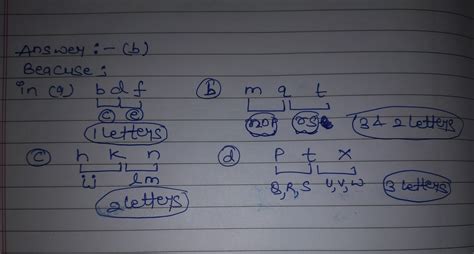 Answer :- (b)
Beacuse ;
in (a) b d f
c e
1 letters
(b) m q t
nop rs
3 & 2 letters
(c) h k n
ij lm
2 letters
(d) p t x
Q, R, S U, V, W
3 letters